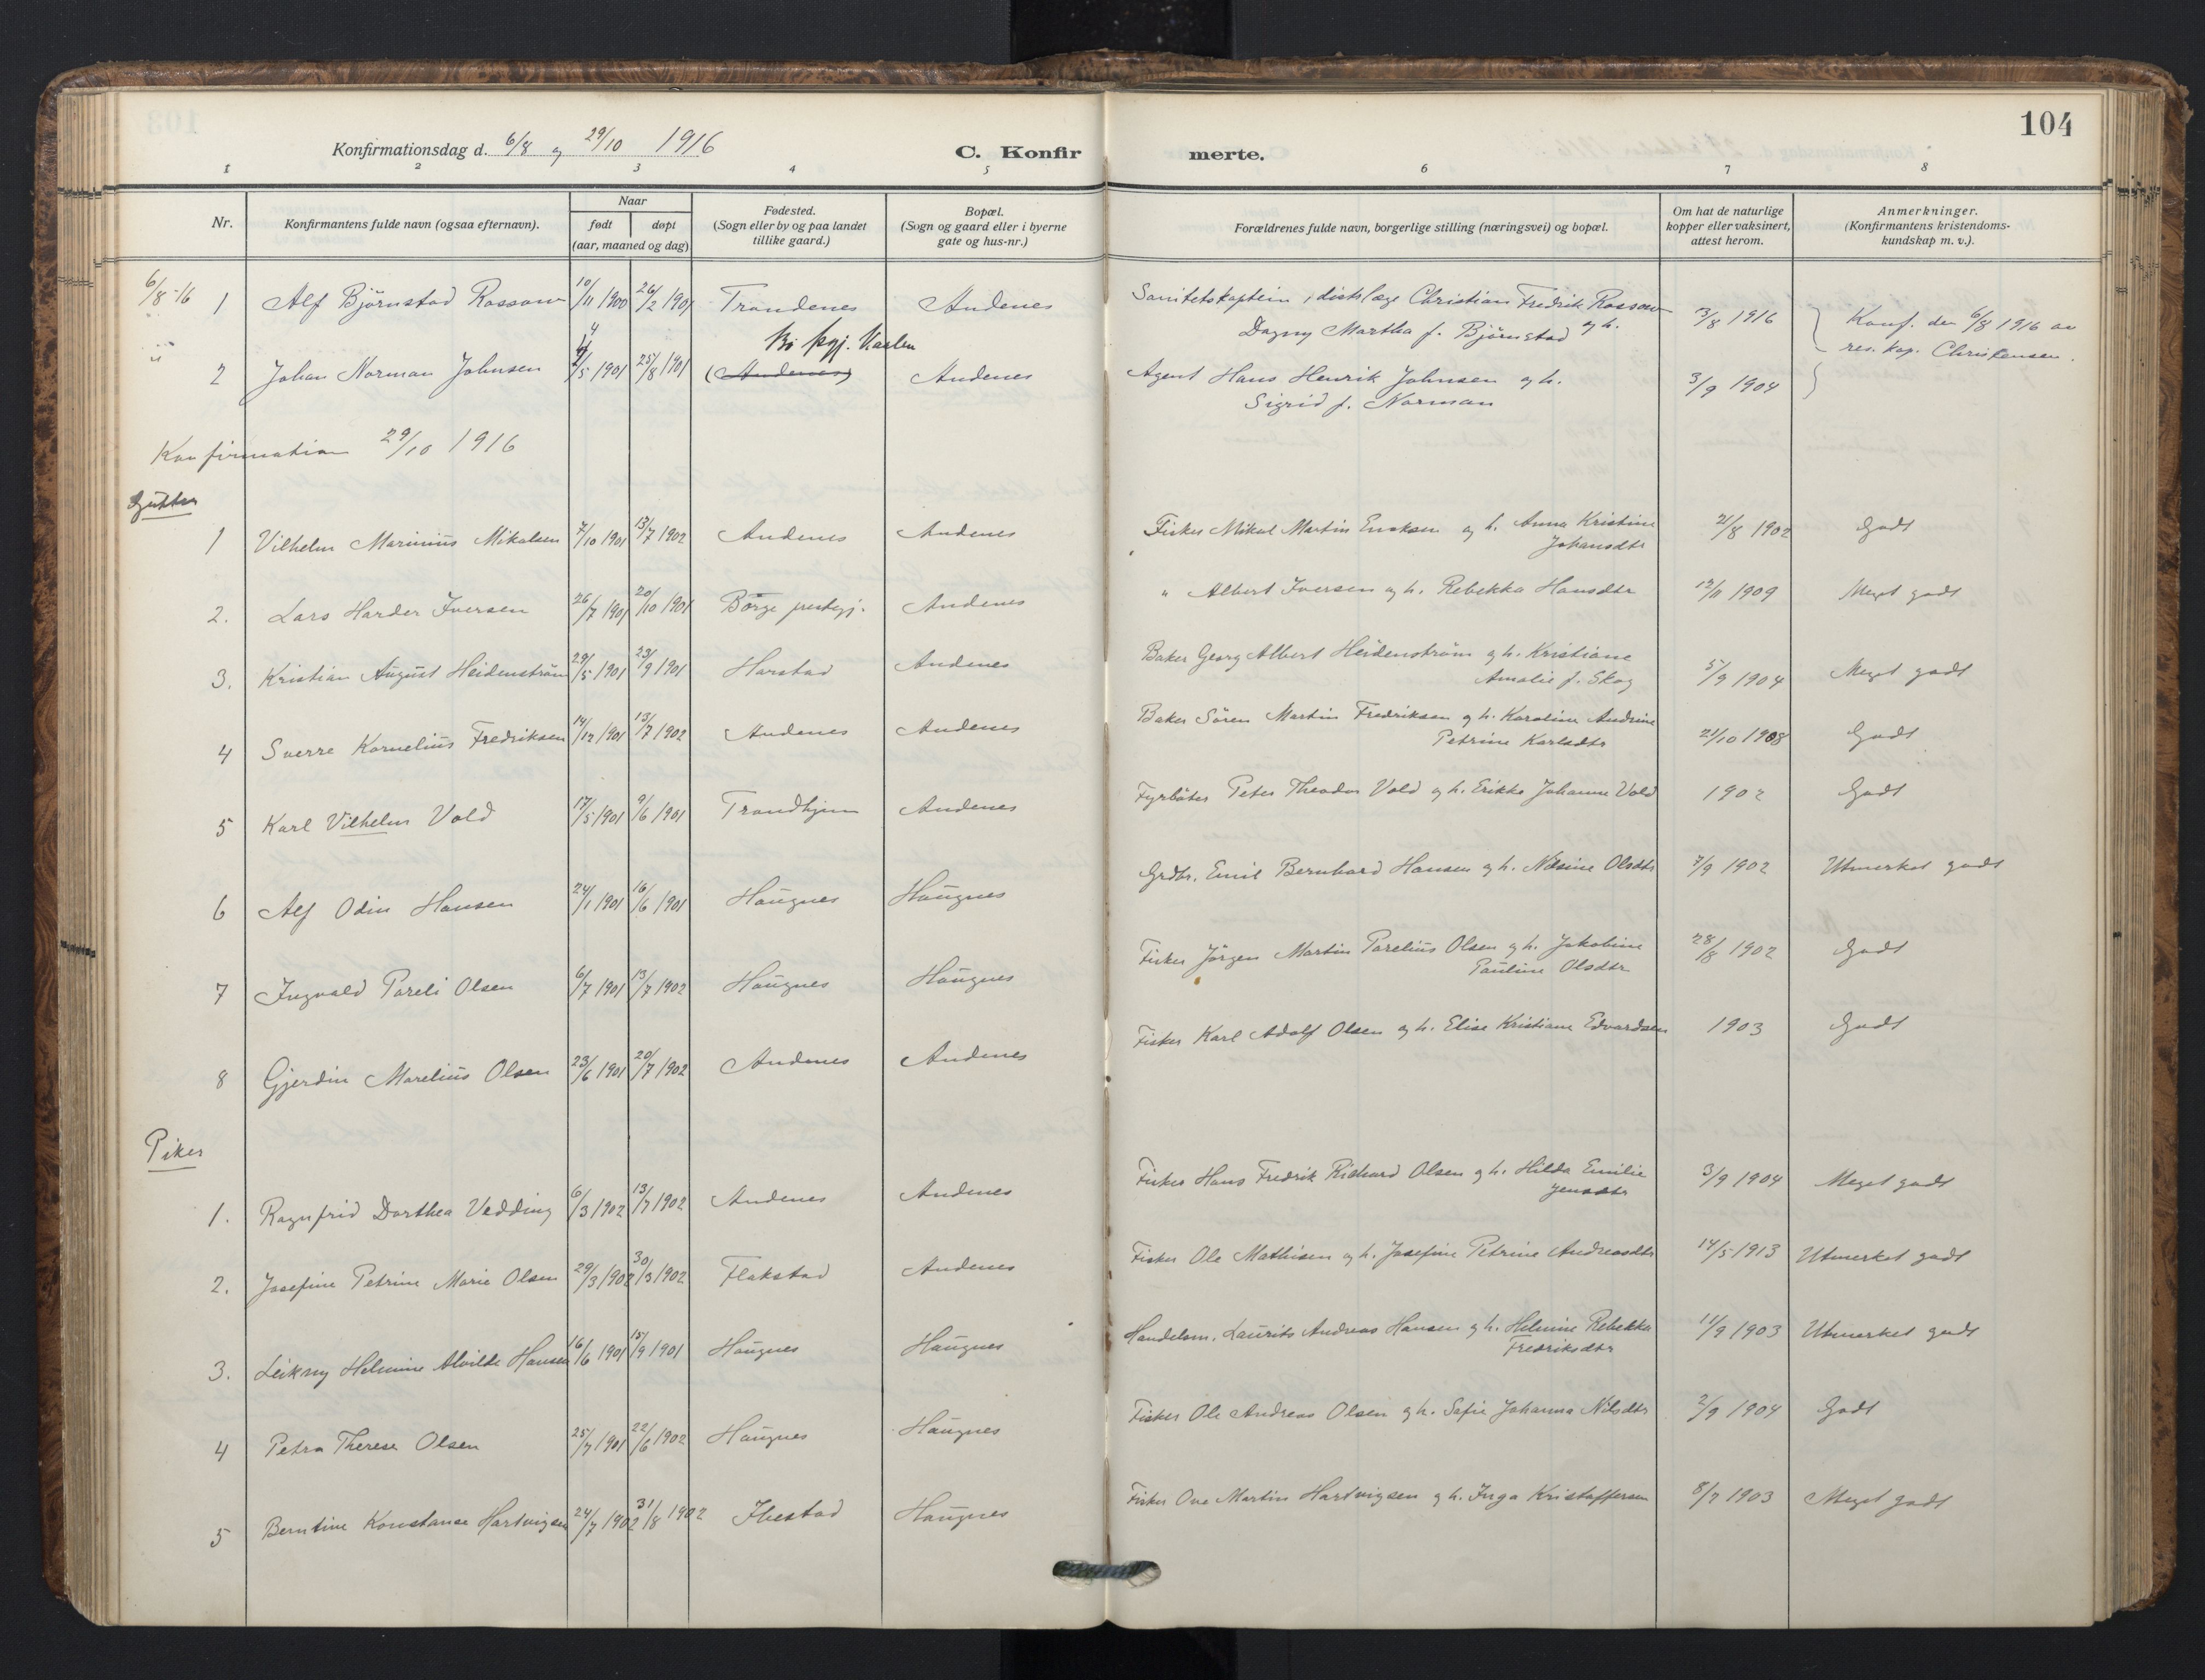 104
Konfirmationsdag d. 6/8 og 29/10 1916
C. Konfir merte.
1 2 3 4 5 6 7 8
Nr.
Konfirmantens fulde navn (ogsaa efternavn).
Naar
født døpt
(aar, maaned og dag)
Fødested.
(Sogn eller by og paa landet
tillike gaard.)
Bopæl.
(Sogn og gaard eller i byerne
gate og hus-nr.)
Forældrenes fulde navn, borgerlige stilling (næringsvei) og bopæl.
Om hat de naturlige
kopper eller vaksinert,
attest herom.
Anmerkninger.
(Konfirmantens kristendoms-
kundskap m. v.).
6/8-16 1 Alf Björnstad Rossow 10/11 1900 26/2 1901 Trondenes Andenes Sanitetskaptein, distrlæge Christian Fredrik Rossow og h. 13/8 1916 Konf. den 6/8 1916 av
Dagny Martha f. Björnstad res. kap. Christensen.
Bö pgj. V.aalen
" 2 Johan Norman Johnsen 4/5 1901 25/8 1901 (Andenes) Andenes Agent Hans Henrik Johnsen og h. 3/9 1904
Sigrid f. Norman
Konfirmation 29/10 1916
Gutter
1 Vilhelm Marinius Mikalsen 7/10 1901 13/7 1902 Andenes Andenes Fisker Mikal Martin Enoksen og h. Anna Kristine 21/8 1902 Godt
Johansdtr
2. Lars Harder Iversen 26/7 1901 20/10 1901 Börge prestegj. Andenes " Albert Iversen og h. Rebekka Hansdtr 12/11 1909 Meget godt
3. Kristian August Heidenström 29/5 1901 23/9 1901 Harstad Andenes Baker Georg Albert Heidenström og h. Kristiane 5/9 1904 Meget godt
Amalie f. Skog
4 Sverre Kornelius Fredriksen 14/12 1901 13/7 1902 Andenes Andenes Baker Sören Martin Fredriksen og h. Karoline Andrine 21/10 1908 Godt
Petrine Karlsdtr
5 Karl Vilhelm Vold 17/5 1901 9/6 1901 Trondhjem Andenes Fyrböter Peter Theodor Vold og h. Erikka Johanne Vold 1902 Godt
6 Alf Odin Hansen 24/1 1901 16/6 1901 Haugnes Haugnes Grdbr. Emil Bernhard Hansen og h. Nilsine Olsdtr 7/9 1902 Utmerket godt
7 Ingvald Pareli Olsen 6/7 1901 13/7 1902 Haugnes Haugnes Fisker Jörgen Martin Parelius Olsen og h. Jakobine 28/8 1902 Godt
Pauline Olsdtr
8 Gjerdin Marelius Olsen 23/6 1901 20/7 1902 Andenes Andenes Fisker Karl Adolf Olsen og h. Elise Kristiane Edvardsen 1903 Godt
Piker
1. Ragnfrid Dorthea Vedding 6/3 1902 13/7 1902 Andenes Andenes Fisker Hans Fredrik Richard Olsen og h. Hilda Emilie 3/9 1904 Meget godt
Jensdtr
2. Josefine Petrine Marie Olsen 29/3 1902 30/3 1902 Flakstad Andenes Fisker Ole Mathisen og h. Josefine Petrine Andreasdtr 14/5 1913 Utmerket godt
3. Leikny Helmine Alvilde Hansen 16/6 1901 15/9 1901 Haugnes Haugnes Handelsm. Laurits Andreas Hansen og h. Helmine Rebekka 11/9 1903 Utmerket godt
Fredriksdtr
4 Petra Therese Olsen 25/7 1901 22/6 1902 Haugnes Haugnes Fisker Ole Andreas Olsen og h. Sofie Johanna Nilsdtr 2/9 1904 Godt
5 Berntine Konstanse Hartvigsen 24/7 1902 31/8 1902 Ibestad Haugnes Fisker Ove Martin Hartvigsen og h. Inga Kristoffersen 8/7 1903 Meget godt